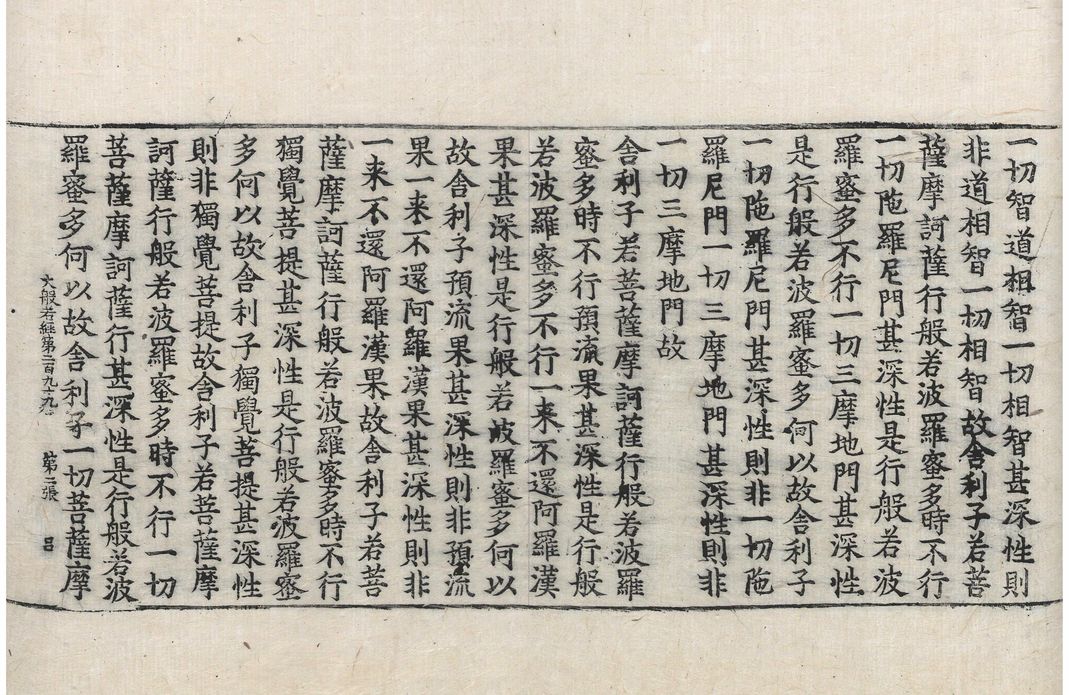 一切智道相智一切相智甚深性則
非道相智一切相智故舍利子若菩
薩摩訶薩行般若波羅蜜多時不行
一切陁羅尼門甚深性是行般若波
羅蜜多不行一切三摩地門甚深性
是行般若波羅蜜多何以故舍利子
一切陁羅尼門甚深性則非一切陁
羅尼門一切三摩地門甚深性則非
一切三摩地門故
舍利子若菩薩摩訶薩行般若波羅
蜜多時不行預流果甚深性是行般
若波羅蜜多不行一来不還阿羅漢
果甚深性是行般若波羅蜜多何以
故舍利子預流果甚深性則非預流
果一来不還阿羅漢果甚深性則非
一来不還阿羅漢果故舍利子若菩
薩摩訶薩行般若波羅蜜多時不行
獨覺菩提甚深性是行般若波羅蜜
多何以故舍利子獨覺菩提甚深性
則非獨覺菩提故舍利子若菩薩摩
訶薩行般若波羅蜜多時不行一切
菩薩摩訶薩行甚深性是行般若波
羅蜜多何以故舍利子一切菩薩摩
大般若經第二百九十九卷 第二張 呂